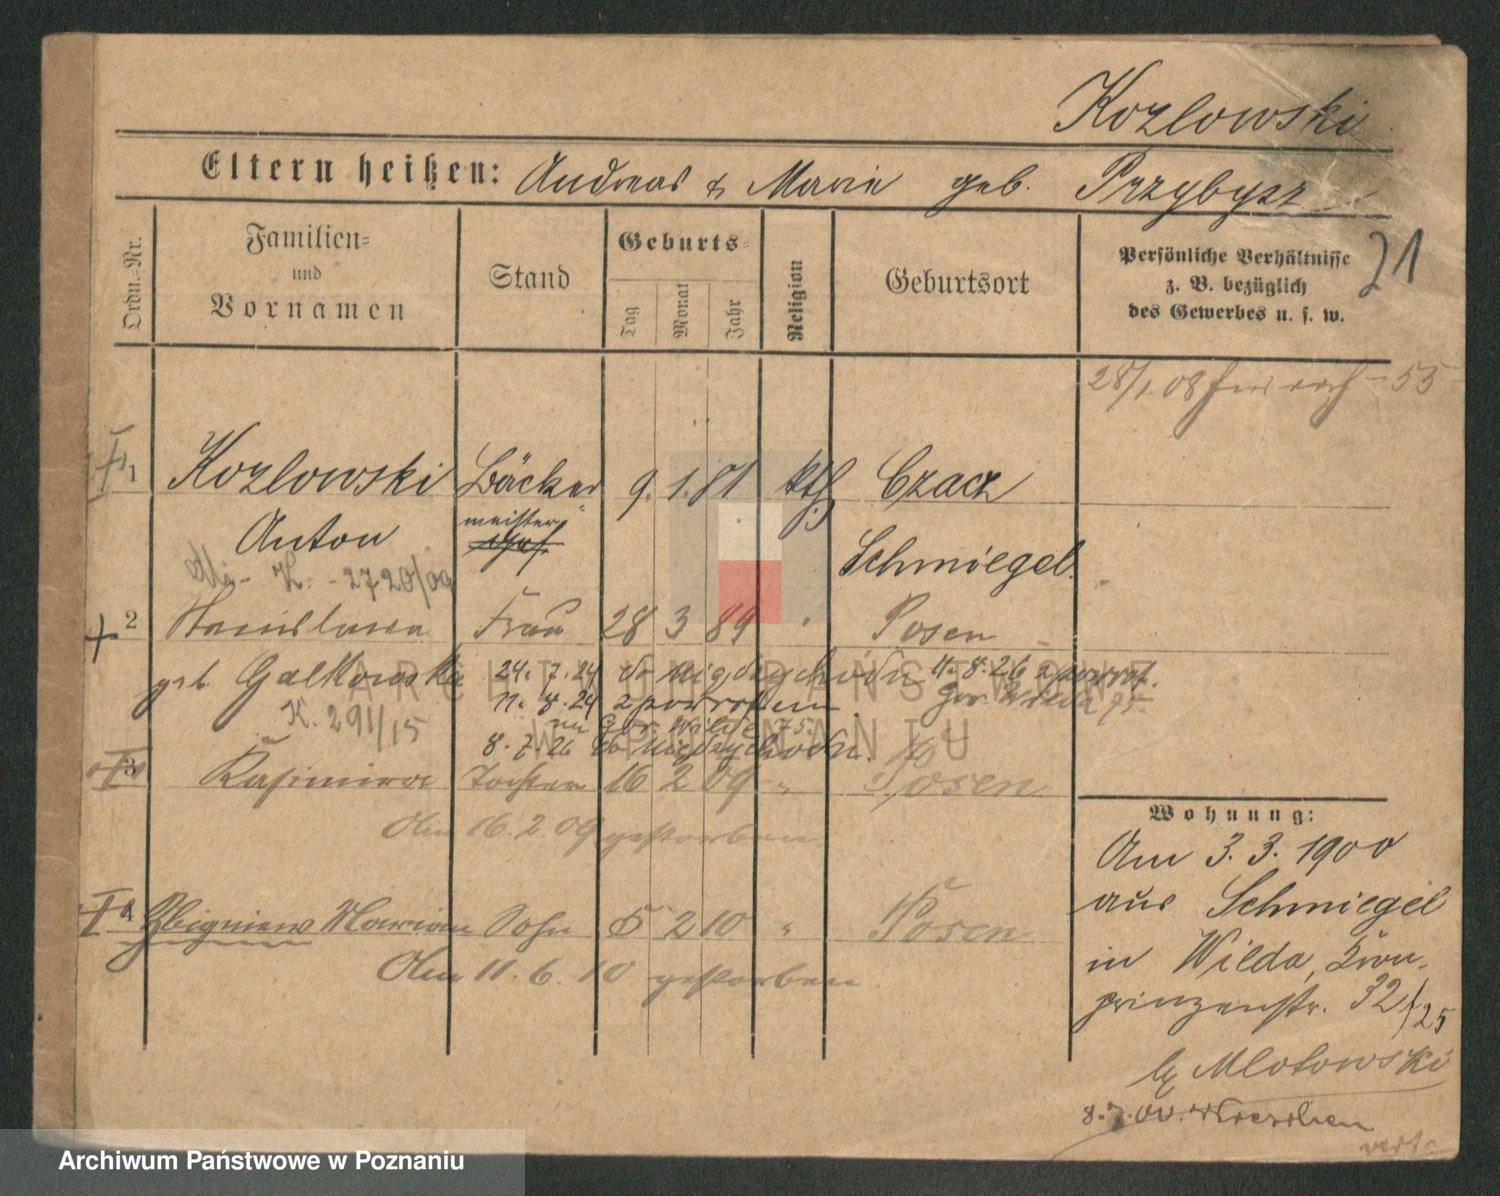 Kozlowski
Eltern heißen: Andreas & Marie geb. Przybysz
21
Ordn.-Nr.
Familien-
und
Vornamen
Stand
Geburts-
Tag
Monat
Jahr
Religion
Geburtsort
Persönliche Verhältnisse
z. B. bezüglich
des Gewerbes u. s. w.
28/1.08 55
1 Kozlowski Bäcker 9. 1. 81 kth. Czacz
meister
Anton Schmiegel.
K. - 2720/09
2 Stanislawa Frau 28 3 89 " Posen
geb. Galkowska 24. 7. 24 do Międzychodu 11. 8. 26 z powrot.
11. 8. 24 z powrotem Gór. Wilda 75.
K. 291/15
Gór. Wilda 75.
8. 7. 26 do Międzychodu.
3 Kasimira Tochter 16 2 09 " Posen
Am 16. 2. 09 gestorben.
4 Zbigniew Marian Sohn 5 2 10 " Posen
Am 11. 6. 10 gestorben.
Wohnung:
Am 3. 3. 1900
aus Schmiegel
in Wilda, Kron-
prinzenstr. 32/25
b/ Mlotowski
8. 7. 00. Wreschen
verte
ARCHIWUM PAŃSTWOWE
W POZNANIU
Archiwum Państwowe w Poznaniu